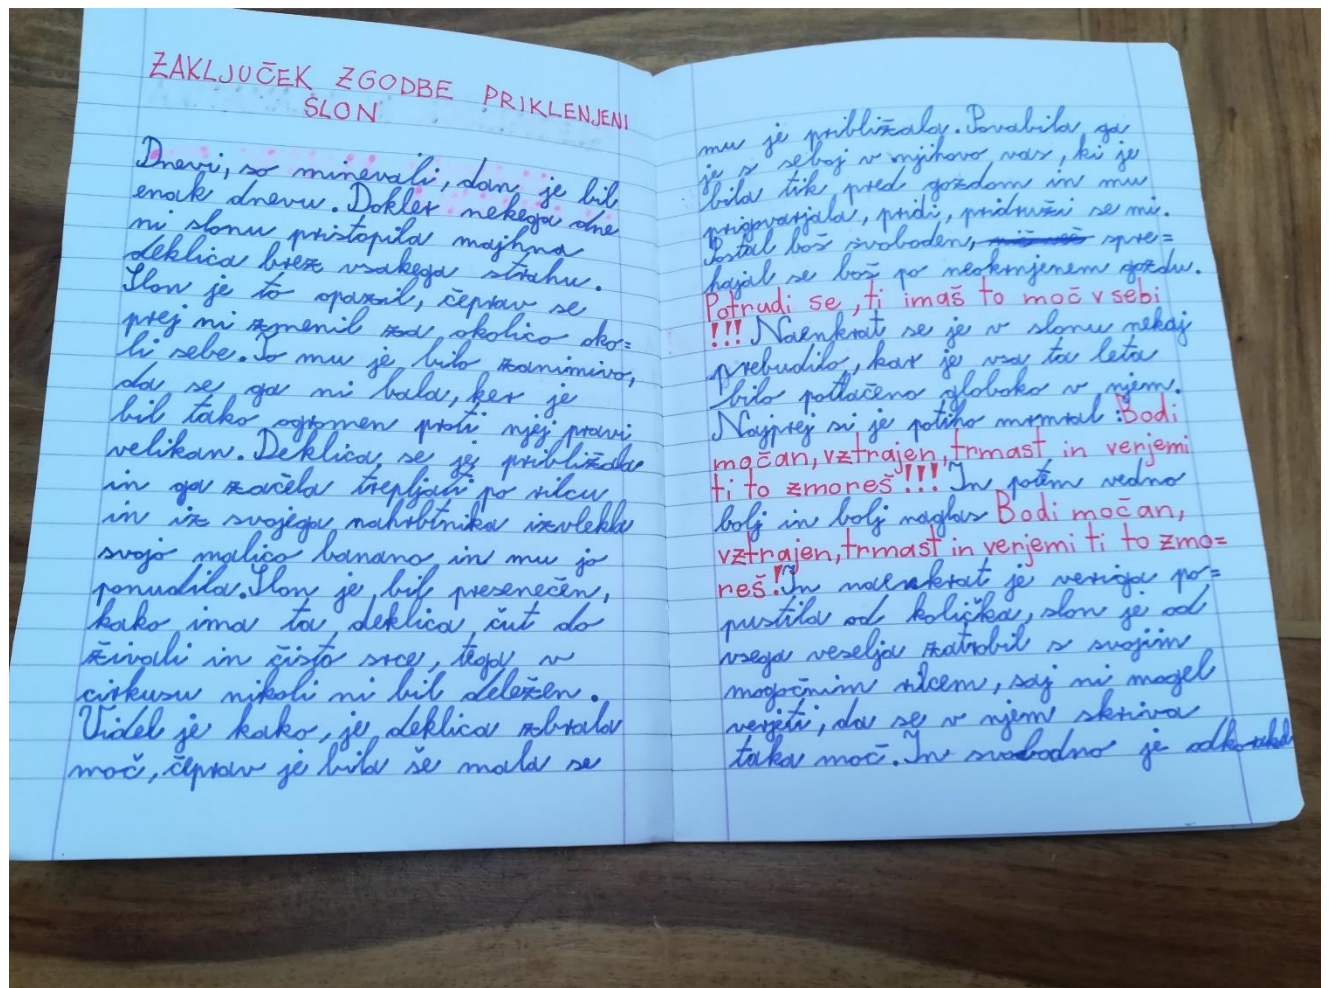 ZAKLJUČEK ZGODBE PRIKLENJENI
SLON
Dnevi, so minevali, dan je bil
enak dnevu. Dokler nekega dne
ni slonu pristopila majhna
deklica brez vsakega strahu.
Slon je to opazil, čeprav se
prej ni zmenil za okolico oko=
li sebe. To mu je bilo zanimivo,
da se ga ni bala, ker je
bil tako ogromen proti njej pravi
velikan. Deklica se je približala
in ga začela trepljati po rilcu
in iz svojega nahrbtnika izvlekla
svojo malico banano in mu jo
ponudila. Slon je bil presenečen,
kako ima ta deklica čut do
živali in čisto srce, tega v
cirkusu nikoli ni bil deležen.
Videl je kako, je deklica zbrala
moč, čeprav je bila še mala se
mu je približala. Povabila ga
je s seboj v njihovo vas, ki je
bila tik pred gozdom in mu
prigovarjala, pridi, pridruži se mi.
Postal boš svoboden, spre=
hajal se boš po neokrnjenem gozdu.
Potrudi se, ti imaš to moč v sebi
!!! Naenkrat se je v slonu nekaj
prebudilo, kar je vsa ta leta
bilo potlačeno globoko v njem.
Najprej si je potiho mrmral: Bodi
močan, vztrajen, trmast in verjemi
ti to zmoreš!!! In potem vedno
bolj in bolj naglas Bodi močan,
vztrajen, trmast in verjemi ti to zmo=
reš! In naenkrat je veriga po=
pustila od količka, slon je od
vsega veselja zatrobil s svojim
mogočnim rilcem, saj ni mogel
verjeti, da se v njem skriva
taka moč. In svobodno je odkorakal